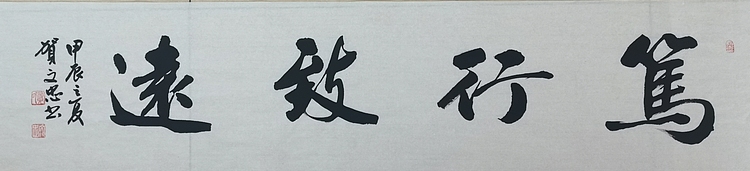 篤行致遠
甲辰之夏
賀文忠书